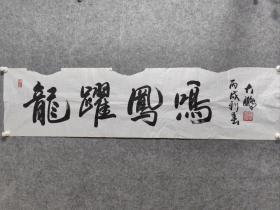 龍躍鳳鳴
丙戌新春